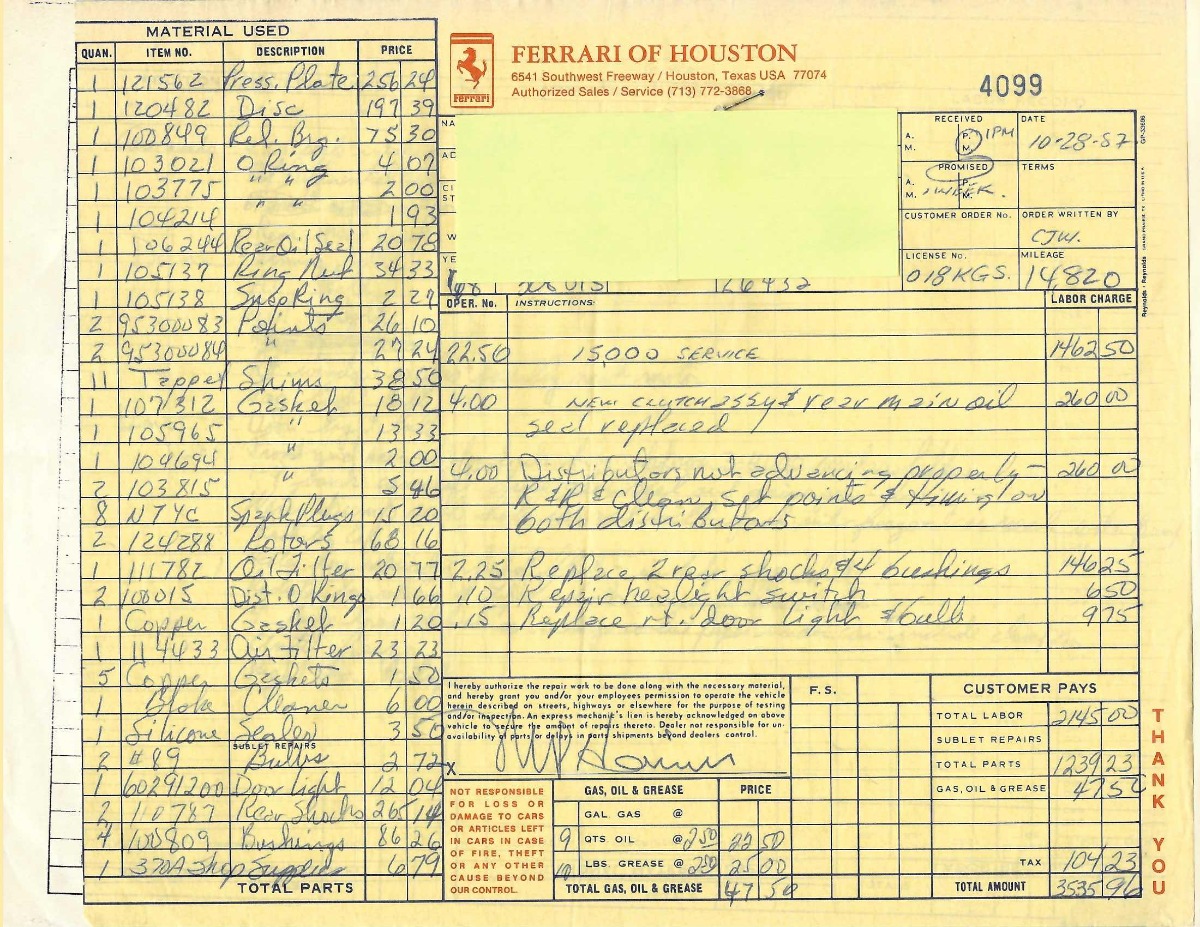 MATERIAL USED
QUAN. ITEM NO. DESCRIPTION PRICE
1 121562 Press. Plate 256 24
1 120482 Disc 197 39
1 100849 Rel. Brg. 75 30
1 103021 O Ring 4 07
1 103775 " " 2 00
1 104214 " " 1 93
1 106244 Rear Oil Seal 20 78
1 105137 Ring Nut 34 33
1 105138 Snap Ring 2 27
2 95300083 Points 26 10
2 95300084 " 27 24
11 Tappet Shims 38 50
1 107312 Gasket 18 12
1 105965 " 13 33
1 104694 " 2 00
2 103815 " 5 46
8 N7YC Spark Plugs 15 20
2 124288 Rotors 68 16
1 111782 Oil Filter 20 77
2 100015 Dist. O Rings 1 66
1 Copper Gasket 1 20
1 114433 Air Filter 23 23
5 Copper Gaskets 1 50
1 Brake Cleaner 6 00
1 Silicone Sealer 3 50
SUBLET REPAIRS
2 #89 Bulbs 2 72
1 60291200 Door Light 12 04
2 110787 Rear Shocks 265 14
4 100809 Bushings 86 26
1 370A Shop Supplies 6 79
TOTAL PARTS
Ferrari
FERRARI OF HOUSTON
6541 Southwest Freeway / Houston, Texas USA 77074
Authorized Sales / Service (713) 772-3868
4099
RECEIVED DATE
A. M. P. M. 1PM 10-28-87
PROMISED TERMS
A. M. P. M. 1 WEEK.
CUSTOMER ORDER No. ORDER WRITTEN BY
CJW.
LICENSE No. MILEAGE
018KGS. 14,820
OPER. No. INSTRUCTIONS: LABOR CHARGE
22.50 15000 SERVICE 1462 50
4.00 NEW CLUTCH assy & rear main oil 260 00
seal replaced
4.00 Distributors not advancing properly – 260 00
R&R & clean, set points & timing on
both distributors
2.25 Replace 2 rear shocks & 4 bushings 146 25
.10 Repair headlight switch 6 50
.15 Replace rt. door light & bulb 9 75
I hereby authorize the repair work to be done along with the necessary material,
and hereby grant you and/or your employees permission to operate the vehicle
herein described on streets, highways or elsewhere for the purpose of testing
and/or inspection. An express mechanic's lien is hereby acknowledged on above
vehicle to secure the amount of repairs thereto. Dealer not responsible for un-
availability of parts or delays in parts shipments beyond dealers control.
X
NOT RESPONSIBLE
FOR LOSS OR
DAMAGE TO CARS
OR ARTICLES LEFT
IN CARS IN CASE
OF FIRE, THEFT
OR ANY OTHER
CAUSE BEYOND
OUR CONTROL.
GAS, OIL & GREASE PRICE
GAL. GAS @
9 QTS. OIL @ 2.50 22 50
10 LBS. GREASE @ 2.50 25 00
TOTAL GAS, OIL & GREASE 47 50
F. S. CUSTOMER PAYS
TOTAL LABOR 2145 00
SUBLET REPAIRS
TOTAL PARTS 1239 23
GAS, OIL & GREASE 47 50
TAX 104 23
TOTAL AMOUNT 3535 96
THANK YOU